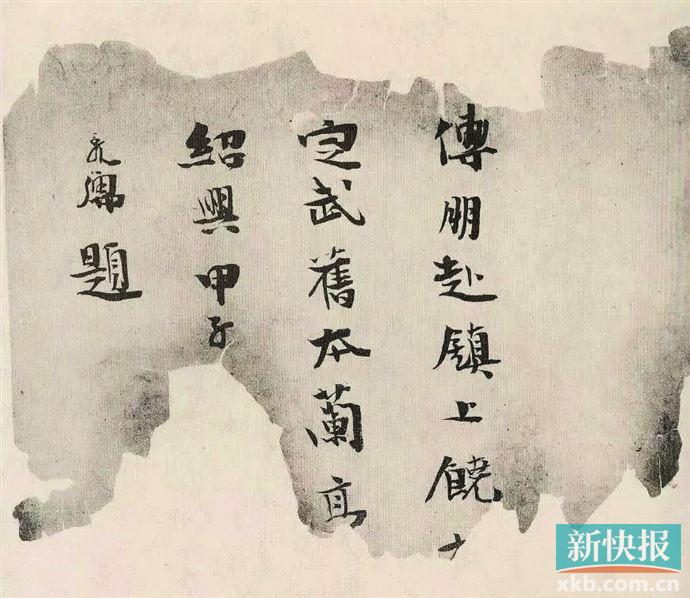 傅朋赴鎮上饒
定武舊本蘭亭
紹興甲子
題
新快报
xkb.com.cn